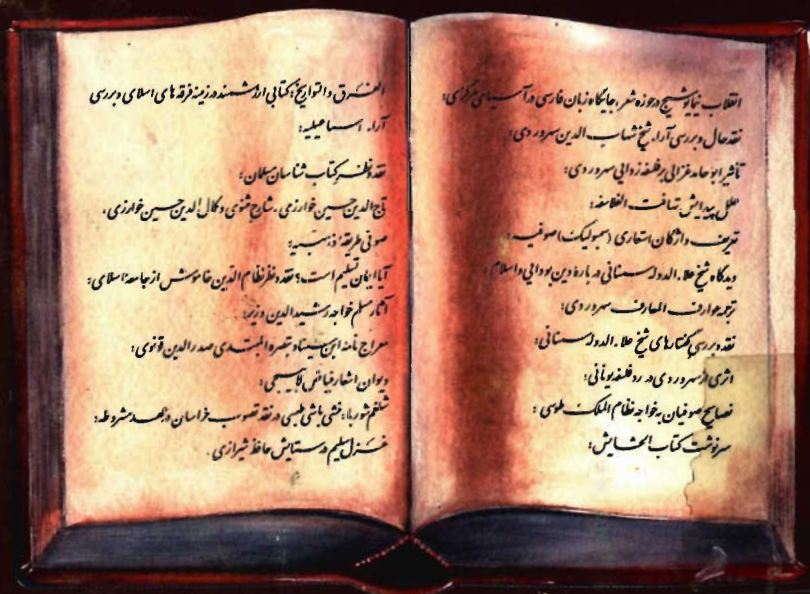 انقلاب نیما یوشیج در حوزه شعر، جایگاه زبان فارسی در آسیای مرکزی؛
نقد حال و بررسی آراء شیخ شهاب الدین سهروردی؛
تأثیر ابو حامد غزالی بر فلسفه زدایی سهروردی؛
علل پیدایش تهافت الفلاسفه؛
تعریف واژگان استعاری (سمبولیک) صوفیه؛
دیدگاه شیخ علاء الدوله سمنانی درباره دین بودایی و اسلام
ترجمه عوارف المعارف سهروردی؛
نقد و بررسی گفتارهای شیخ علاء الدوله سمنانی؛
اثری از سهروردی در رد فلسفه یونانی؛
نصایح صوفیان به خواجه نظام الملک طوسی؛
سرنوشت کتاب الحشایش؛
الفرق و التواریخ؛ کتابی ارزشمند در زمینه فرقه های اسلامی و بررسی
آراء اسماعیلیه؛
نقد و نظر کتاب شناسان مسلمان؛
تاج الدین حسین خوارزمی، شارح مثنوی و کمال الدین حسین خوارزمی،
صوفی طریقه ذهبیه؛
آیا ایمان تسلیم است؟ نقد و نظر نظام الدین خاموش از جامعه اسلامی؛
آثار مسلم خواجه رشید الدین وزیر؛
معراج نامه ابن سینا، تبصرة المبتدی صدر الدین قونوی؛
دیوان اشعار فیاض لاهیجی؛
شلغم شوربا؛ منشی باشی طبسی در نقد تصوف خراسان در عهد مشروطه؛
غزل سلیم در ستایش حافظ شیرازی.